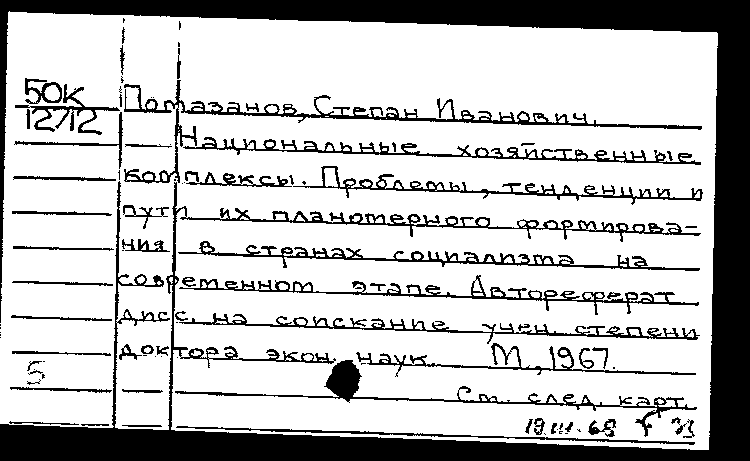 50К
12712
Потазанов, Степан Иванович.
Национальные хозяйственные
комплексы. Проблемы, тенденции и
пути их планомерного формирова-
ния в странах социализма на
современном этапе. Автореферат
дисс. на соискание учен. степени
доктора экон. наук. М., 1967.
5
См. след. карт.
19.III.68